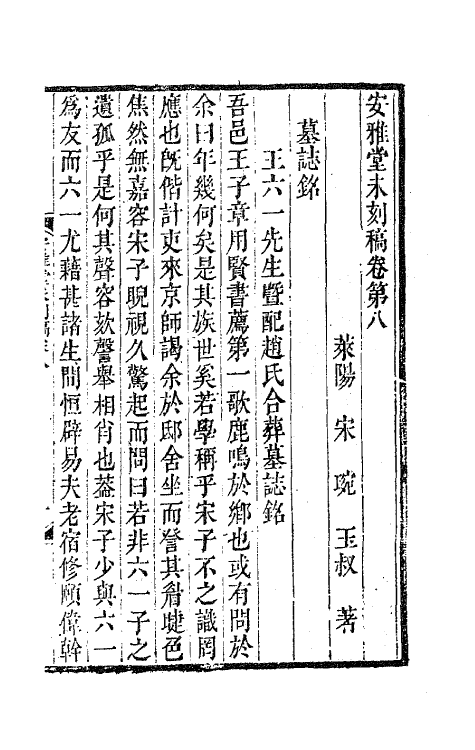 安雅堂未刻稿卷第八
萊陽 宋 琬 玉叔 著
墓誌銘
王六一先生暨配趙氏合葬墓誌銘
吾邑王子章用賢書薦第一歌鹿鳴於鄉也或有問於
余曰年幾何矣是其族世奚若學稱乎宋子不之識罔
應也旣偕計吏來京師謁余於邸舍坐而詧其眉睫色
焦然無嘉容宋子睨視久驚起而問曰若非六一子之
遺孤乎是何其聲容欬謦舉相肖也葢宋子少與六一
爲友而六一尤藉甚諸生間恒辟易夫老宿修頤偉幹